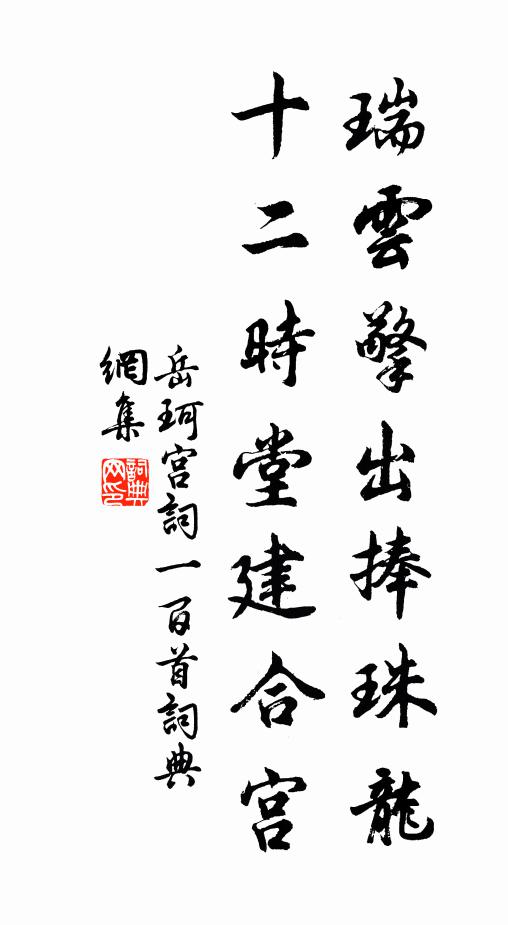 瑞雲擎出捧珠龍
十二時堂建合宮
岳珂宮詞一百首詞典
網集
詞典网印